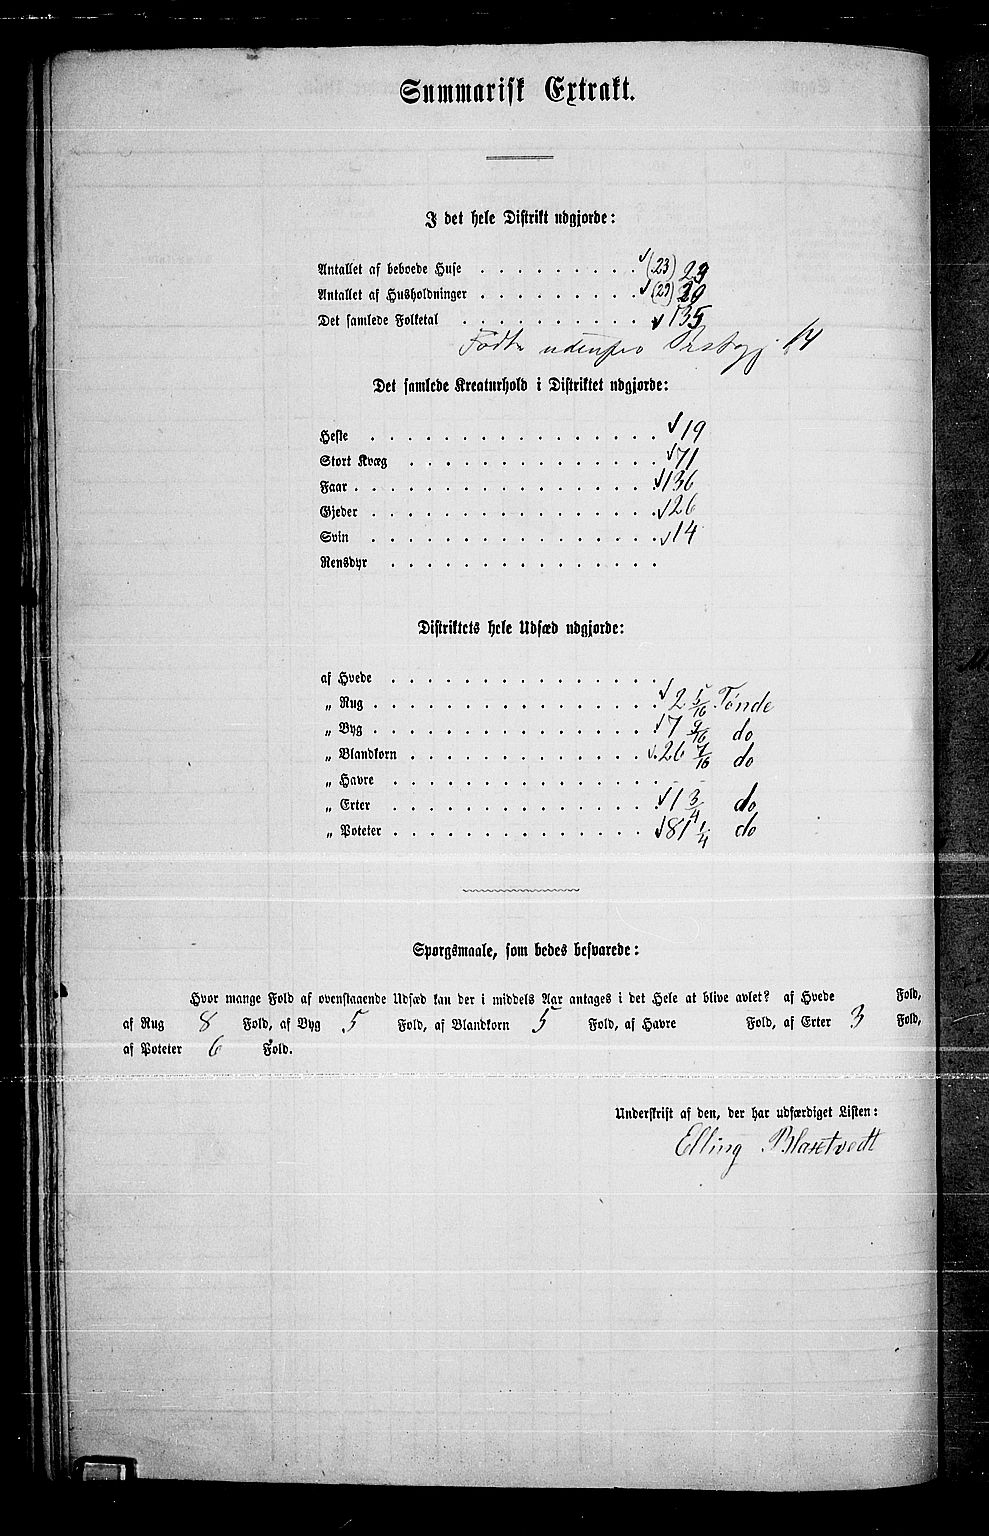 Summarisk Extrakt.
I det hele Distrikt udgjorde:
Antallet af beboede Huse (23) 29
Antallet af Husholdninger (29)
Det samlede Folketal 135
Fødte udenfro Præstegj. 14
Det samlede Kreaturhold i Distriktet udgjorde:
Heste 19
Stort Kvæg 71
Faar 136
Gjeder 26
Svin 14
Rensdyr
Distriktets hele Udsæd udgjorde:
af Hvede
„ Rug 2 5/16 Tønde
„ Byg 7 9/16 do
„ Blandkorn 26 7/16 do
„ Havre
„ Erter 1 3/4 do
„ Poteter 81 1/4 do
Spørgsmaale, som bedes besvarede:
Hvor mange Fold af ovenstaaende Udsæd kan der i middels Aar antages i det Hele at blive avlet? af Hvede Fold,
af Rug 8 Fold, af Byg 5 Fold, af Blandkorn 5 Fold, af Havre Fold, af Erter 3 Fold,
af Poteter 6 Fold.
Underskrift af den, der har udfærdiget Listen:
Elling